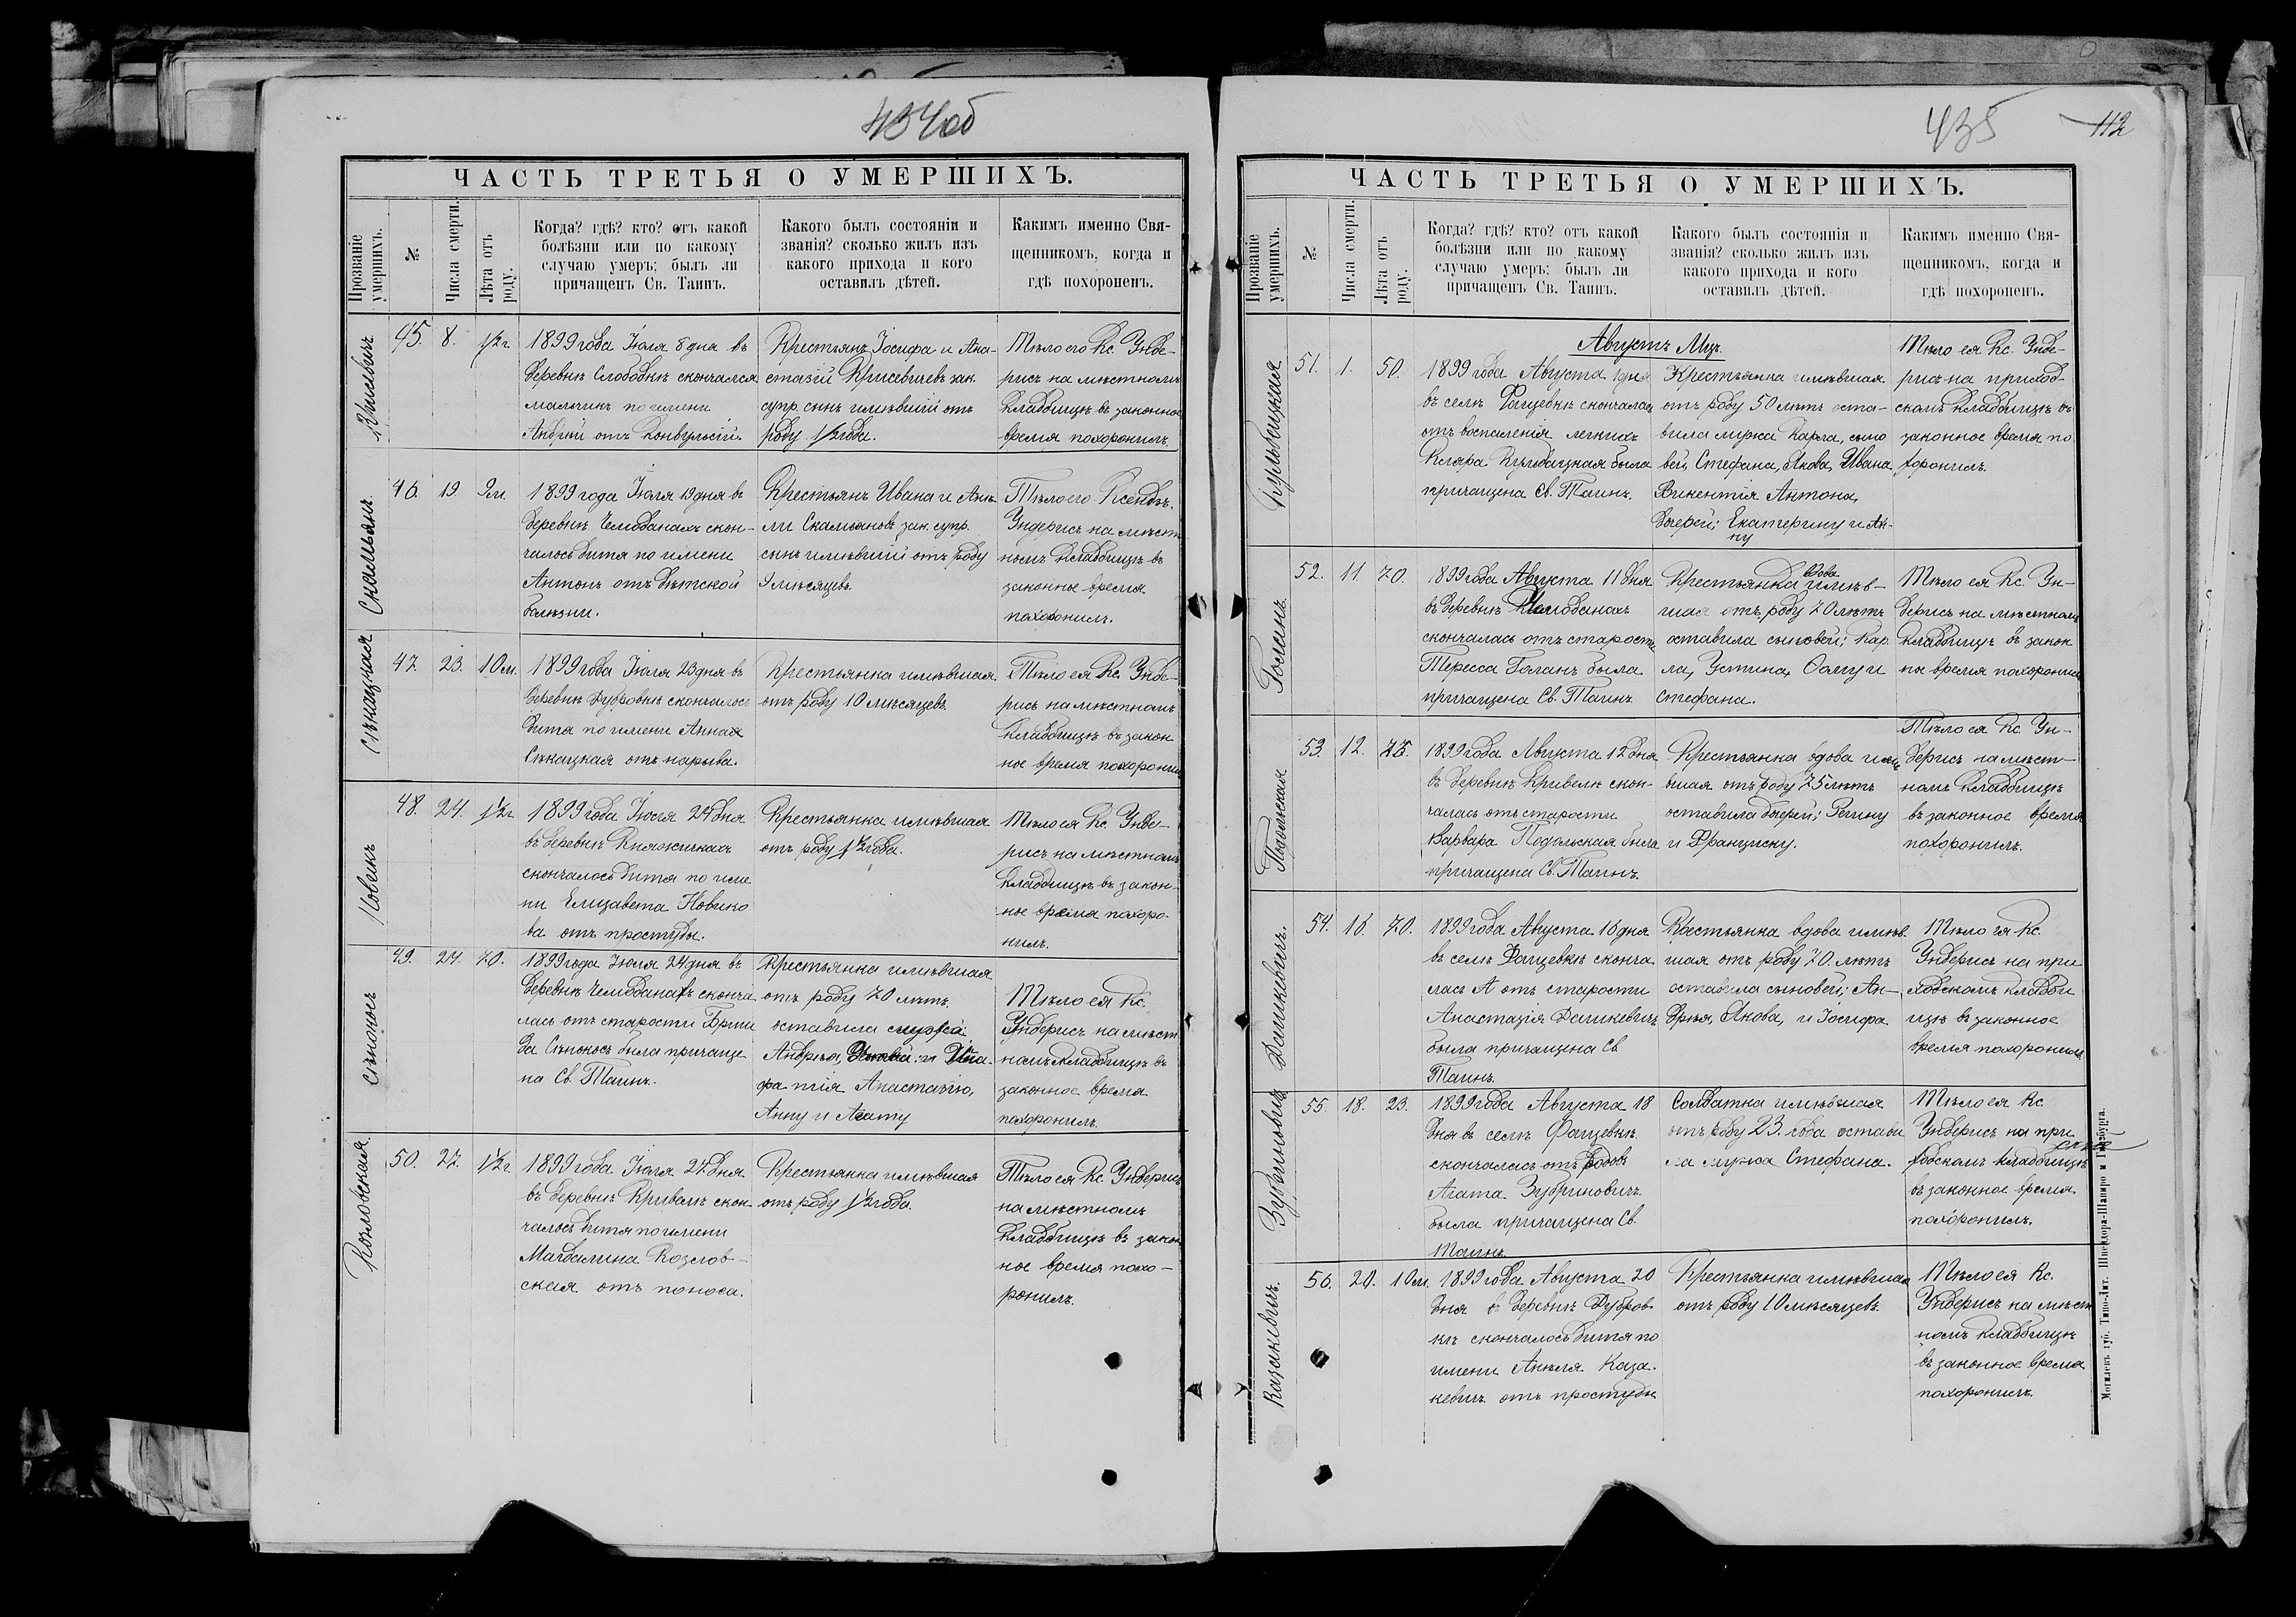 434об
ЧАСТЬ ТРЕТЬЯ О УМЕРШИХЪ.
Прозваніе умершихъ.
№
Числа смерти.
Лѣта отъ роду.
Когда? гдѣ? кто? отъ какой
болѣзни или по какому
случаю умеръ; былъ ли
причащенъ Св. Таинъ.
Какого былъ состояніи и
званія? сколько жилъ изъ
какого прихода и кого
оставилъ дѣтей.
Какимъ именно Свя-
щенникомъ, когда и
гдѣ похороненъ.
45. 8. 1/2 г.
1899 года Іюля 8 дня въ
деревнѣ Слободкѣ скончался
мальчикъ по имени
Андрей отъ конвульсій.
Крестьянъ Іосифа и Ана-
стазіи зак.
супр. сынъ имѣвшій отъ
роду 1/2 года.
Тѣло его Кс. Унде-
рисъ на мѣстномъ
кладбищѣ въ законное
время похоронилъ.
Скамьянъ
46. 19. 9 м.
1899 года Іюля 19 дня въ
деревнѣ Чемоданахъ скон-
чалось дитя по имени
Антонъ отъ дѣтской
болѣзни.
Крестьянъ Ивана и Анѣ-
ли Скамьяновъ зак. супр.
сынъ имѣвшій отъ роду
9 мѣсяцевъ.
Тѣло его Ксендзъ
Ундерисъ на мѣст-
номъ кладбищѣ въ
законное время
похоронилъ.
Сѣкацкая
47. 23. 10 м.
1899 года Іюля 23 дня въ
деревнѣ Дубровкѣ скончалось
дитя по имени Анна
Сѣкацкая отъ нарыва.
Крестьянка имѣвшая
отъ роду 10 мѣсяцевъ.
Тѣло ея Кс. Унде-
рисъ на мѣстномъ
кладбищѣ въ закон-
ное время похоронилъ
Новикъ
48. 24. 1 1/2 г.
1899 года Іюля 24 дня
въ деревнѣ Княжичахъ
скончалось дитя по име
ни Елизавета Новико
ва отъ простуды.
Крестьянка имѣвшая
отъ роду 1 1/2 года.
Тѣло ея Кс. Унде-
рисъ на мѣстномъ
кладбищѣ въ закон-
ное время похоро-
нилъ.
Сѣнокосъ
49. 24. 70.
1899 года Іюля 24 дня въ
деревнѣ Чемоданахъ сконча
лась отъ старости Бриги
да Сѣнокосъ была причаще
на Св. Таинъ.
Крестьянка имѣвшая
отъ роду 70 лѣтъ
оставила мужа
Андрея, и Ипа-
фатія Анастазію,
Анну и Агату
Тѣло ея Кс.
Ундерисъ на мѣст
номъ кладбищѣ въ
законное время
похоронилъ.
Козловская.
50. 27. 1 1/2 г.
1899 года Іюля 27 дня
въ деревнѣ Кривелѣ скон
чалось дитя по имени
Магдалина Козлов-
ская отъ поноса.
Крестьянка имѣвшая
отъ роду 1 1/2 года.
Тѣло ея Кс. Ундерисъ
на мѣстномъ
кладбищѣ въ закон
ное время похо-
ронилъ.
435
112
ЧАСТЬ ТРЕТЬЯ О УМЕРШИХЪ.
Прозваніе умершихъ.
№
Числа смерти.
Лѣта отъ роду.
Когда? гдѣ? кто? отъ какой
болѣзни или по какому
случаю умеръ; былъ ли
причащенъ Св. Таинъ.
Какого былъ состоянія и
званія? сколько жилъ изъ
какого прихода и кого
оставилъ дѣтей.
Какимъ именно Свя-
щенникомъ, когда и
гдѣ похороненъ.
Августъ Мцъ.
Кульбацкая
51. 1. 50.
1899 года Августа 1 дня
въ селѣ Фащевкѣ скончалась
отъ воспаленія легкихъ
Кляра Кульбацкая была
причащена Св. Таинъ.
Крестьянка имѣвшая
отъ роду 50 лѣтъ оста-
вила мужа Карла, сыно
вей, Стефана, Якова, Ивана
Викентія Антона,
дочерей: Екатерину и Ан-
ну
Тѣло ея Кс. Унде-
рисъ на приход-
скомъ кладбищѣ въ
законное время по
хоронилъ.
Голанъ
52. 11. 70.
1899 года Августа 11 дня
въ деревнѣ Чемоданахъ
скончалась отъ старости
Тересса Голанъ была
причащена Св. Таинъ.
Крестьянка вдова имѣв-
шая отъ роду 70 лѣтъ
оставила сыновей; Кар
ла, Устина, Ѳому и
Стефана.
Тѣло ея Кс. Ун-
дерисъ на мѣстномъ
кладбищѣ въ закон
на время похоронилъ
Подольская
53. 12. 75.
1899 года Августа 12 дня
въ деревнѣ Кривелѣ скон-
чалась отъ старости
Варвара Подольская была
причащена Св. Таинъ.
Крестьянка вдова имѣ
вшая отъ роду 75 лѣтъ
оставила дочерей: Регину
и Францишку.
Тѣло ея Кс. Ун-
дерисъ на мѣст-
номъ кладбищѣ
въ законное время
похоронилъ.
Далинкевичъ.
54. 16. 70.
1899 года Августа 16 дня
въ селѣ Фащевкѣ сконча
лась А отъ старости
Анастазія Далинкевичъ
была причащена Св.
Таинъ.
Крестьянка вдова имѣв
шая отъ роду 70 лѣтъ
оставила сыновей; Ан-
дрея, Якова, и Іосифа
Тѣло ея Кс.
Ундерисъ на при
ходскомъ кладби
щѣ въ законное
время похоронилъ.
Зубриновичъ
55. 18. 23.
1899 года Августа 18
дня въ селѣ Фащевкѣ
скончалась отъ родовъ
Агата Зубриновичъ.
была причащена Св.
Таинъ.
Солдатка имѣвшая
отъ роду 23. года остави
ла мужа Стефана.
Тѣло ея Кс.
Ундерисъ на при
ходскомъ кладбищѣ
въ законное время
похоронилъ.
Казакевичъ.
56. 20. 10 м.
1899 года Августа 20
дня въ деревнѣ Дубров-
кѣ скончалось дитя по
имени Анѣля Каза-
кевичъ отъ простуды
Крестьянка имѣвшая
отъ роду 10 мѣсяцевъ
Тѣло ея Кс.
Ундерисъ на мѣст
номъ кладбищѣ
въ законное время
похоронилъ.
Могилевъ губ. Типо-Лит.